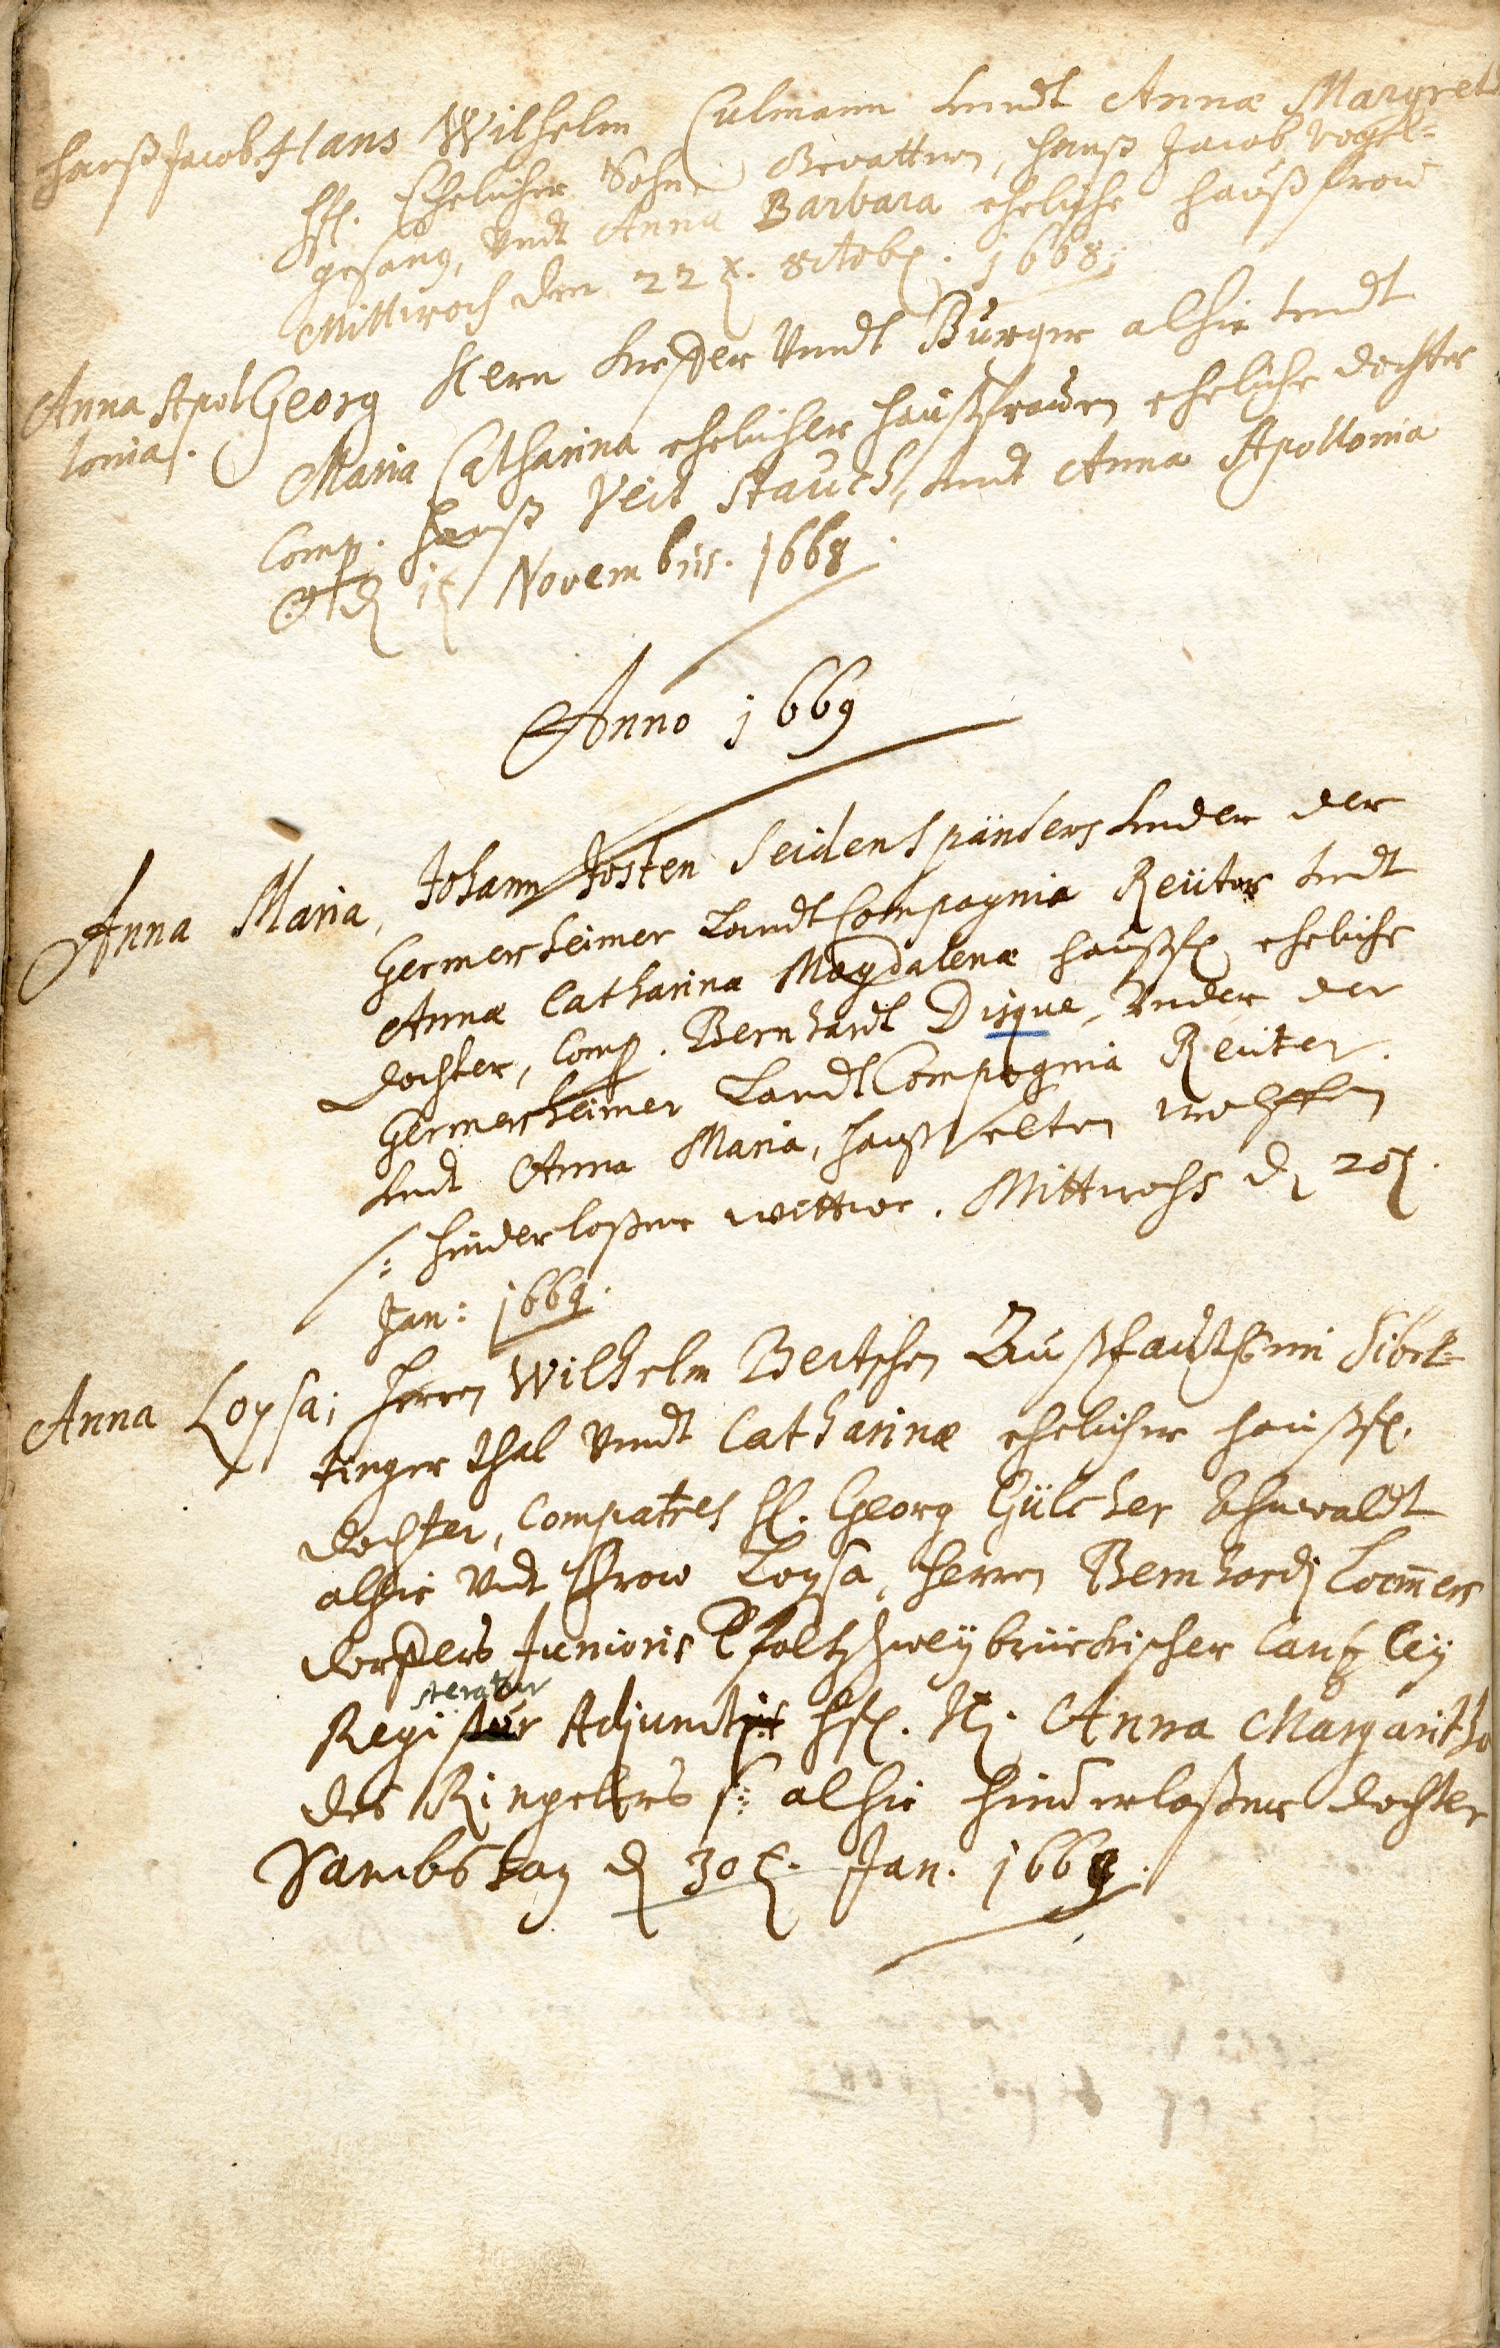 Hanß Jacob. Hans Wilhelm Culmann undt Annæ Margreth
hfr. Ehelicher Sohn Gevattern, Hanß Jacob Vogel-
gesang, Vndt Anna Barbara eheliche haußfraw
Mittwoch den 22 t. 8ctobr. 1668.
Anna Apol Georg Kern Vnndt Burger alhie undt
lonia. Maria Catharina ehelicher haußfrawen eheliche dochter
Comp. Hanß Veit Stauch, undt Anna Apollonia
d Novembris. 1668.
Anno 1669
Anna Maria, Johann Josten Seidenspänders under der
Germersheimer Landt Compagnia Reüter undt
Annæ Catharina Magdalenæ haußfr eheliche
dochter, Comp. Bernhardt Disque, Vnder der
Germersheimer Landt Compagnia Reuter.
undt Anna Maria, Hanß
s: hinderloßene wittwe. Mittwochs d 20t.
Jan: 1669.
Anna Loysa; Herren Wilhelm Bertschen im Sibel-
tinger thal Vnndt Catharinæ ehelicher haußfr.
dochter, Compatres H. Georg Gülcher
alhie Vndt Fraw Loysa, Herren Bernhardi
Junioris Pfaltz Zweybrückischer Cantzley
steratur
Regi Adjuncti hfr. It. Anna Margaritha
des Ringelers s: alhie hinderloßene dochter
Sambstag d 30t. Jan. 1669.